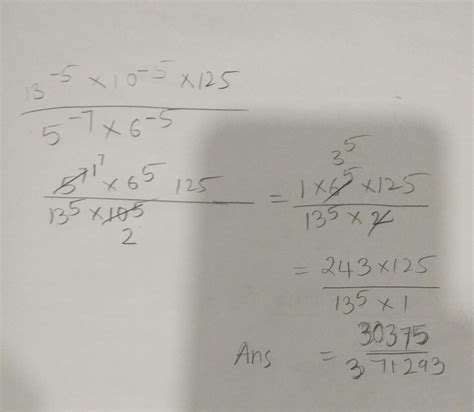 13^-5 × 10^-5 × 125
5^-7 × 6^-5
5^7 1^7 × 6^5 125
13^5 × 10^5
2
3^5
= 1 × 6^5 × 125
13^5 × 2
= 243 × 125
13^5 × 1
Ans = 30375
371293